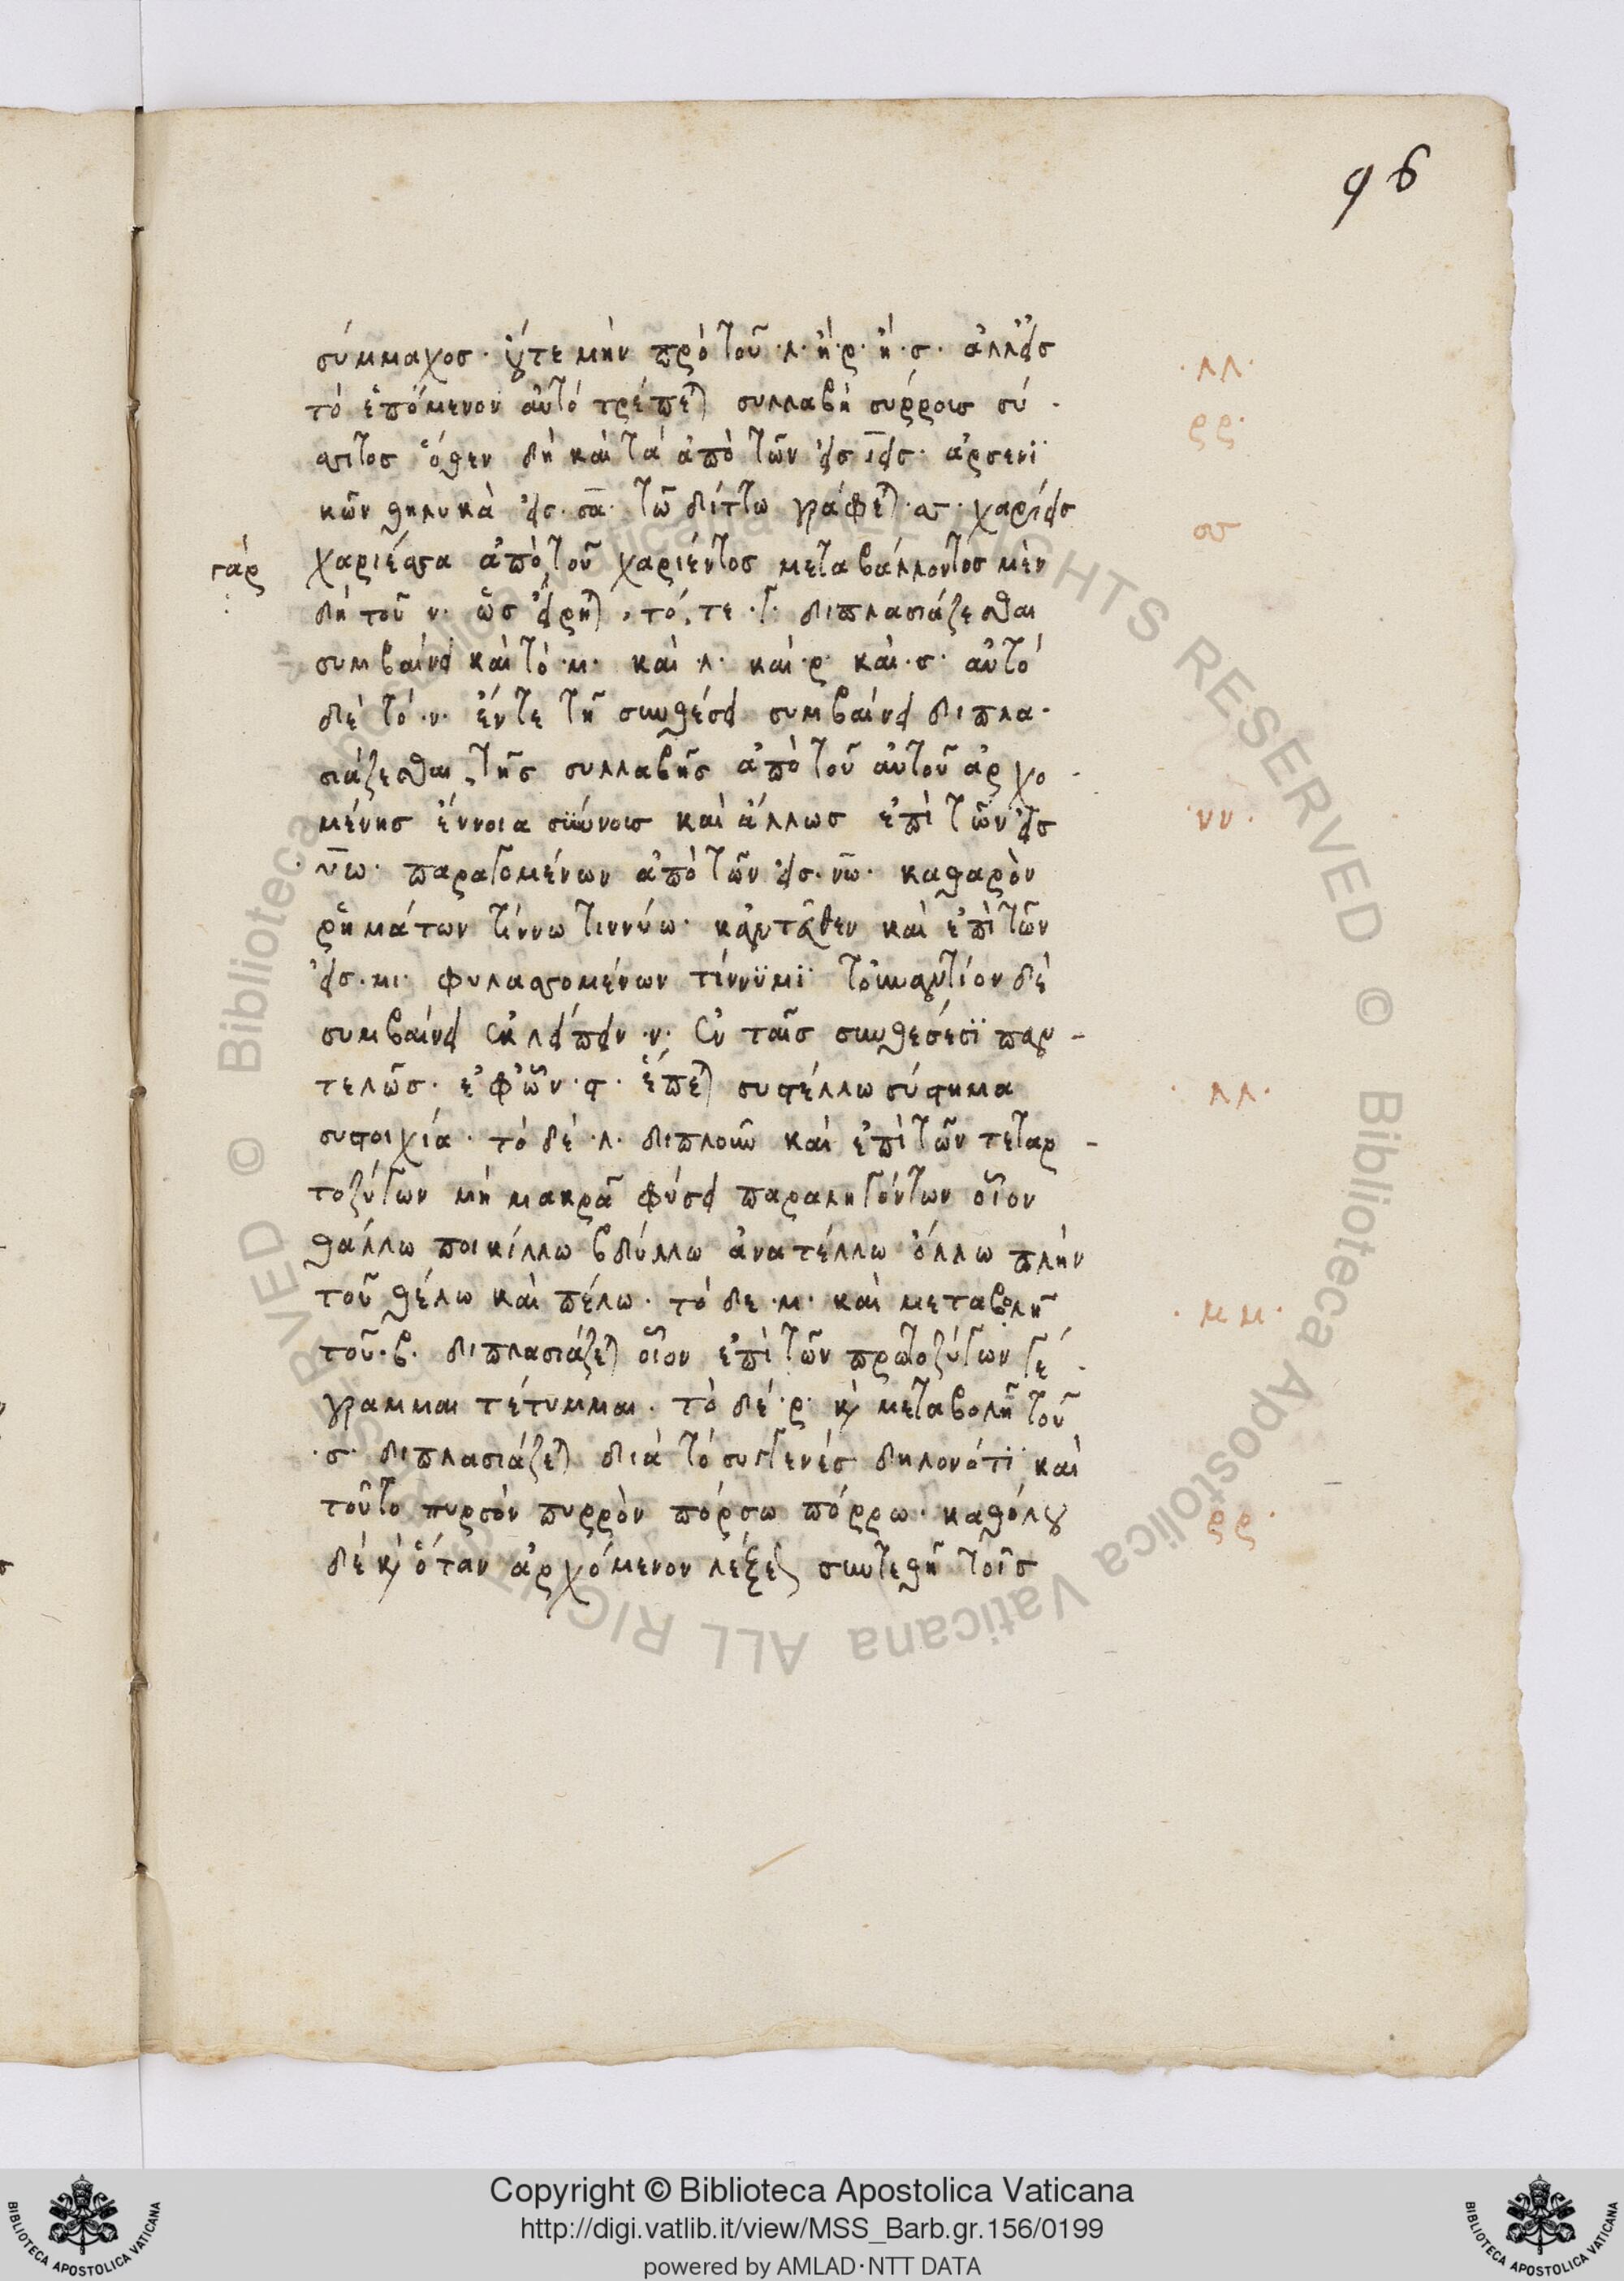 96
σύμμαχοσ· οὔτε μὴν πρὸ τοῦ ·λ· ἢ ·ρ· ἢ ·σ· ἀλλ' εἰσ
τὸ ἑπόμενον αὐτὸ τρέπεται συλλαβὴ σύρροισ σύ-
σσιτοσ ὅθεν δὴ καὶ τὰ ἀπὸ τῶν εἰσ ἀρσενι
κῶν θηλυκὰ εἰσ· σα· τῶ διττῶ γράφεται ·σσ· χαρίεισ
γὰρ χαρίεσσα ἀπὸ τοῦ χαρίεντοσ μεταβάλλοντοσ μὲν
δὴ τοῦ ν· ὡσ εἴρηται, τό, τε ·γ· διπλασιάζεσθαι
συμβαίνει καὶ τὸ ·μ· καὶ ·λ· καὶ ·ρ· καὶ ·σ· αὐτὸ
δὲ τὸ ·ν· ἔν τε τῆ συνθέσει συμβαίνει διπλα-
σιάζεσθαι τῆσ συλλαβῆσ ἀπὸ τοῦ αὐτοῦ ἀρχο-
μένησ ἔννοια σύννοισ καὶ ἄλλωσ ἐπὶ τῶν εἰσ
·νω· παραγομένων ἀπὸ τῶν εἰσ· νω· καθαρὸν
ῥημάτων τίννω τιννύω· κἀνταῦθεν καὶ ἐπὶ τῶν
εἰσ· μι· φυλασσομένων τίννϋμϊ τοὐναντίον δὲ
συμβαίνει ἐκλείπειν ·ν· ἐν ταῖσ συνθέσεσϊ παν-
τελῶσ· ἐφ' ὧν ·στ· ἕπεται συστέλλω σύστημα
συστοιχία· τὸ δὲ ·λ· διπλοῦν καὶ ἐπὶ τῶν τεταρ-
τοζύγων μὴ μακρᾶ φύσει παραληγόντων οἷον
θάλλω ποικίλλω βδύλλω ἀνατέλλω ὄλλω πλὴν
τοῦ θέλω καὶ πέλω· τὸ δε ·μ· καὶ μεταβολῆ
τοῦ ·β· διπλασιάζεται οἷον ἐπὶ τῶν πρωτοζύγων γέ-
γραμμαι τέτυμμαι· τὸ δὲ ·ρ· καὶ μεταβολῆ τοῦ
·σ· διπλασιάζεται διὰ τὸ συγγενέσ δηλονότϊ καὶ
τοῦτο πυρσὸν πυρρὸν πόρσω πόρρω· καθόλου
δὲ καὶ ὅταν ἀρχόμενον λέξεωσ συντεθῆ τοῖσ
·λλ·
ρρ·
σσ
·νν·
·λλ·
·μμ·
ρρ·
Copyright © Biblioteca Apostolica Vaticana
http://digi.vatlib.it/view/MSS_Barb.gr.156/0199
powered by AMLAD·NTT DATA
BIBLIOTECA APOSTOLICA VATICANA
BIBLIOTECA APOSTOLICA VATICANA
© Biblioteca Apostolica Vaticana ALL RIGHTS RESERVED
© Biblioteca Apostolica Vaticana ALL RIGHTS RESERVED